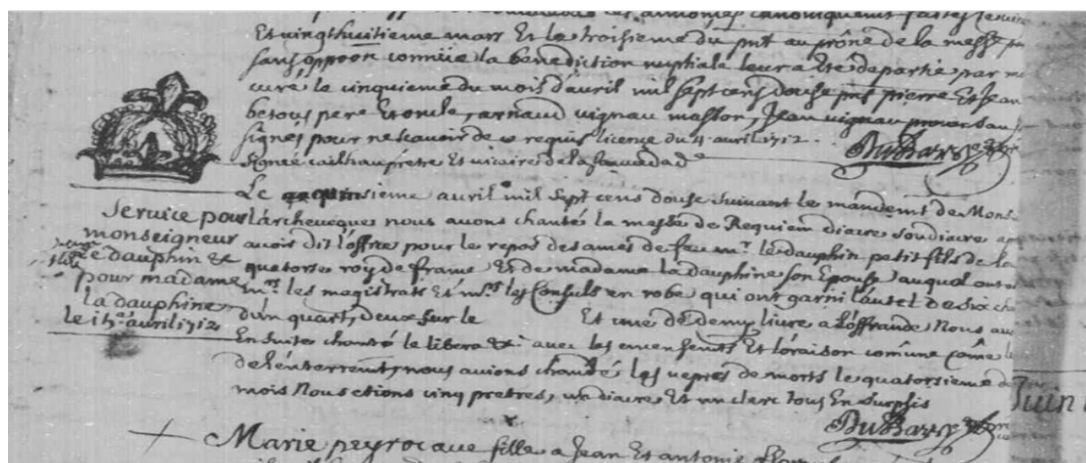 Et vingt huitieme mars Et le troisieme du pnt au prône de la messe
sans oppoon connüe la benediction nuptiale leur a Eté departie par
curé le cinquieme du mois d'avril mil sept cens douse pnt pierre Et Jean
betous pere Et oncle, arnaud vignau masson, Jean vignau
signés pour ne scavoir de ce requis licence du 4 avril 1712.
signée cailhau pretre Et vicaire de la
DuBarry
Le quinsieme avril mil sept cens douse suivant le mandemt de Mons
l'archeveque nous avons chanté la messe de Requiem diacre soudiacre
avoir dit l'office pour le repos des ames de feu mr. le dauphin petit fils de
quatorse roy de france Et de madame la dauphine son Epouse auquel ont
mrs les magistrats Et mrs les Consuls en robe qui ont garni l'autel de six
d'un quart, deux sur le Et une de demy livre a l'offrande Nous
En suite chanté le libera &c avec les encensemts Et l'oraison comune come
de l'enterremt, nous avions chanté les vepres de morts le quatorsieme
mois Nous etions cinq pretres, un diacre Et un clerc tous En surplis
DuBarry
Service pour
monseigneur
le dauphin et
pour madame
la dauphine
le 15e avril 1712
Juin
Marie peyrocaue fille a Jean Et antonie